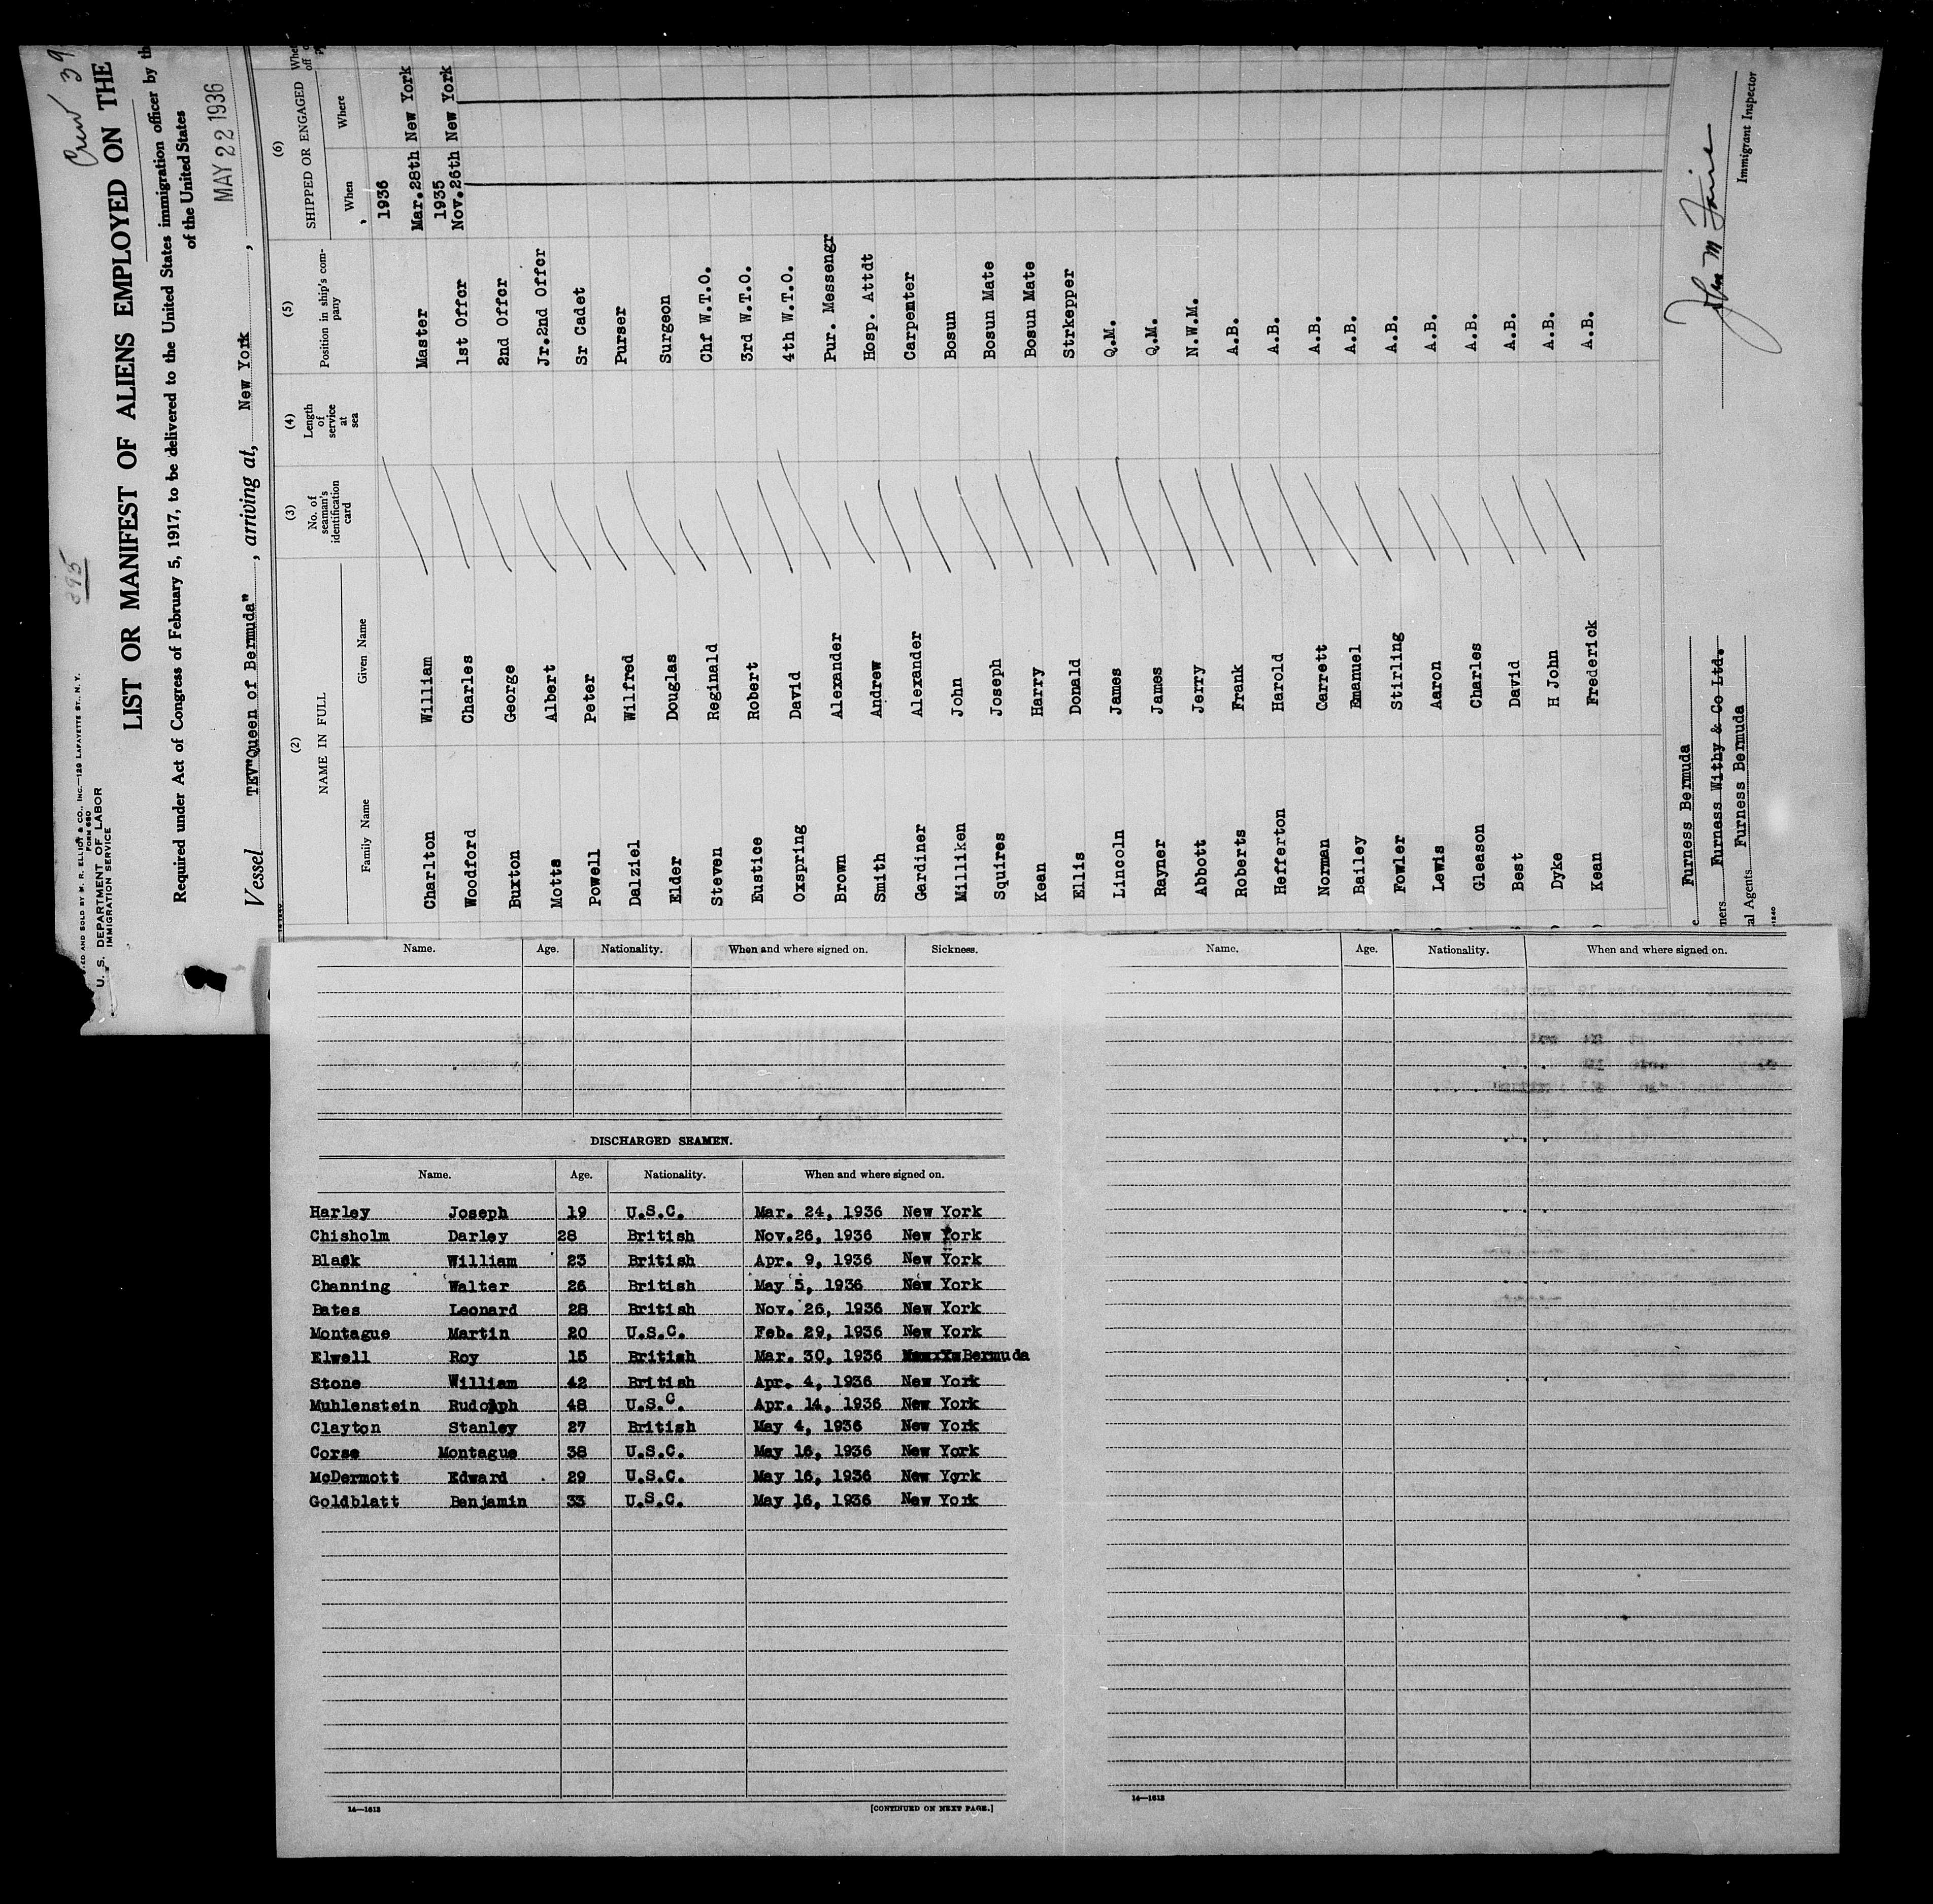 Crew 39
395
ED AND SOLD BY M. R. ELLIOT & CO., INC.—129 LAFAYETTE ST., N. Y.
FORM 680
U. S. DEPARTMENT OF LABOR
IMMIGRATION SERVICE
LIST OR MANIFEST OF ALIENS EMPLOYED ON THE
Required under Act of Congress of February 5, 1917, to be delivered to the United States immigration officer by th
of the United States
MAY 22 1936
Vessel TEV"Queen of Bermuda", arriving at, New York,
(2) (3) (4) (5) (6)
NAME IN FULL No. of seaman's identification card Length of service at sea Position in ship's company SHIPPED OR ENGAGED
Family Name Given Name When Where
1936
Charlton William Master Mar.28th New York
1935
Woodford Charles 1st Offcr Nov.26th New York
Buxton George 2nd Offcr
Motts Albert Jr.2nd Offcr
Powell Peter Sr Cadet
Dalziel Wilfred Purser
Elder Douglas Surgeon
Steven Reginald Chf W.T.O.
Eustice Robert 3rd W.T.O.
Oxspring David 4th W.T.O.
Brown Alexander Pur. Messengr
Smith Andrew Hosp. Attdt
Gardiner Alexander Carpenter
Milliken John Bosun
Squires Joseph Bosun Mate
Kean Harry Bosun Mate
Ellis Donald Strkepper
Lincoln James Q.M.
Rayner James Q.M.
Abbott Jerry N.W.M.
Roberts Frank A.B.
Hefferton Harold A.B.
Norman Garrett A.B.
Bailey Emanuel A.B.
Fowler Stirling A.B.
Lewis Aaron A.B.
Gleason Charles A.B.
Best David A.B.
Dyke H John A.B.
Kean Frederick A.B.
Furness Bermuda
ners Furness Withy & Co Ltd.
al Agents Furness Bermuda
John M
Immigrant Inspector
Name. Age. Nationality. When and where signed on. Sickness.
DISCHARGED SEAMEN.
Name. Age. Nationality. When and where signed on.
Harley Joseph 19 U.S.C. Mar. 24, 1936 New York
Chisholm Darley 28 British Nov.26, 1936 New York
Black William 23 British Apr. 9, 1936 New York
Channing Walter 26 British May 5, 1936 New York
Bates Leonard 28 British Nov. 26, 1936 New York
Montague Martin 20 U.S.C. Feb. 29, 1936 New York
Elwell Roy 15 British Mar. 30, 1936 Bermuda
Stone William 42 British Apr. 4, 1936 New York
Muhlenstein Rudolph 48 U.S.C. Apr. 14, 1936 New York
Clayton Stanley 27 British May 4, 1936 New York
Corse Montague 38 U.S.C. May 16, 1936 New York
McDermott Edward 29 U.S.C. May 16, 1936 New York
Goldblatt Benjamin 33 U.S.C. May 16, 1936 New York
14—1613
[CONTINUED ON NEXT PAGE.]
Name. Age. Nationality. When and where signed on.
14—1613